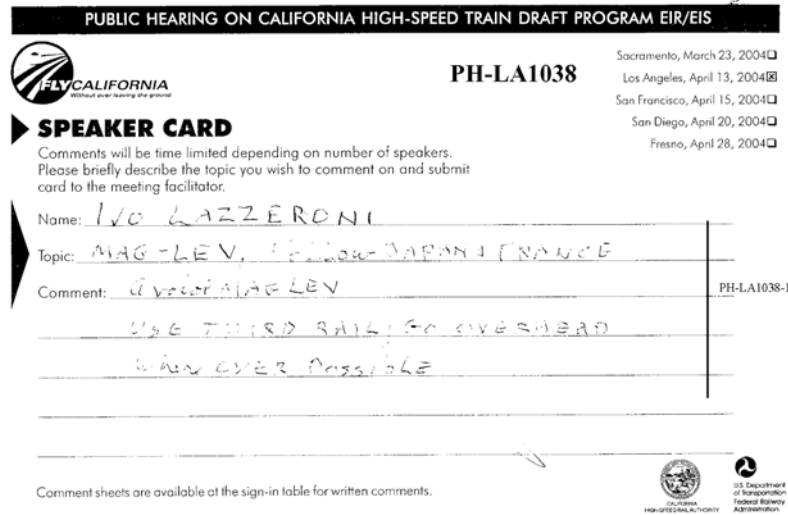 PUBLIC HEARING ON CALIFORNIA HIGH-SPEED TRAIN DRAFT PROGRAM EIR/EIS
FLY CALIFORNIA
Without ever leaving the ground.
PH-LA1038
Sacramento, March 23, 2004☐
Los Angeles, April 13, 2004☒
San Francisco, April 15, 2004☐
San Diego, April 20, 2004☐
Fresno, April 28, 2004☐
SPEAKER CARD
Comments will be time limited depending on number of speakers.
Please briefly describe the topic you wish to comment on and submit
card to the meeting facilitator.
Name: IVO LAZZERONI
Topic: MAG-LEV, FOLLOW JAPAN & FRANCE
Comment: avoid MAG LEV
PH-LA1038-1
USE THIRD RAIL; GO OVERHEAD
when EVER PossibLE
Comment sheets are available at the sign-in table for written comments.
CALIFORNIA
HIGH-SPEED RAIL AUTHORITY
U.S. Department
of Transportation
Federal Railway
Administration